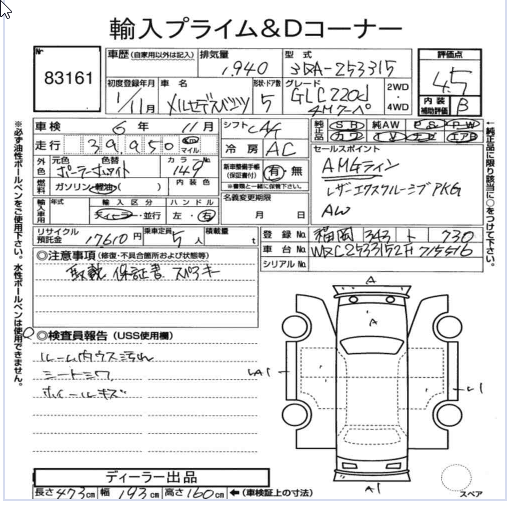 輸入プライム&Dコーナー
No 83161
車歴(自家用以外は記入) 排気量 1,940 型式 3DA-253315 評価点 4.5
初度登録年月 1/11月 車名 メルセデスベンツ 形状・ドア数 5 グレード GLC220d 2WD・4WD 内装補助評価 B
車検 6年 11月 シフト 純正品 SR 純AW PS PW
走行 39,950 マイル 冷房 AC セールスポイント
外色 元色 色替 ポーラーホワイト カラーNo 149 新車整備手帳(保証書付) 有・無 AMGライン
燃料 ガソリン・軽油・( ) 内装色 ※書類と一緒に保管下さい。 レザーエクスクルーシブPKG
輸入車用 年式 輸入区分 ディーラー・並行 ハンドル 左・右 名義変更期限 月 日 AW
リサイクル預託金 17610円 乗車定員 5人 積載量 t 登録No. 福岡 343 730
車台No. WDC2533152H
シリアルNo.
◎注意事項(修復・不具合箇所および状態等)
取説 保証書 スペアキー
◎検査員報告(USS使用欄)
ルーム内ウス汚れ
シートシワ
ホイールキズ
A
A
UA1
A1
スペア
ディーラー出品
長さ473cm 幅193cm 高さ160cm ←(車検証上の寸法)
※必ず油性ボールペンをご使用下さい。水性ボールペンは使用できません。
←純正品に限り該当に○をつけて下さい。